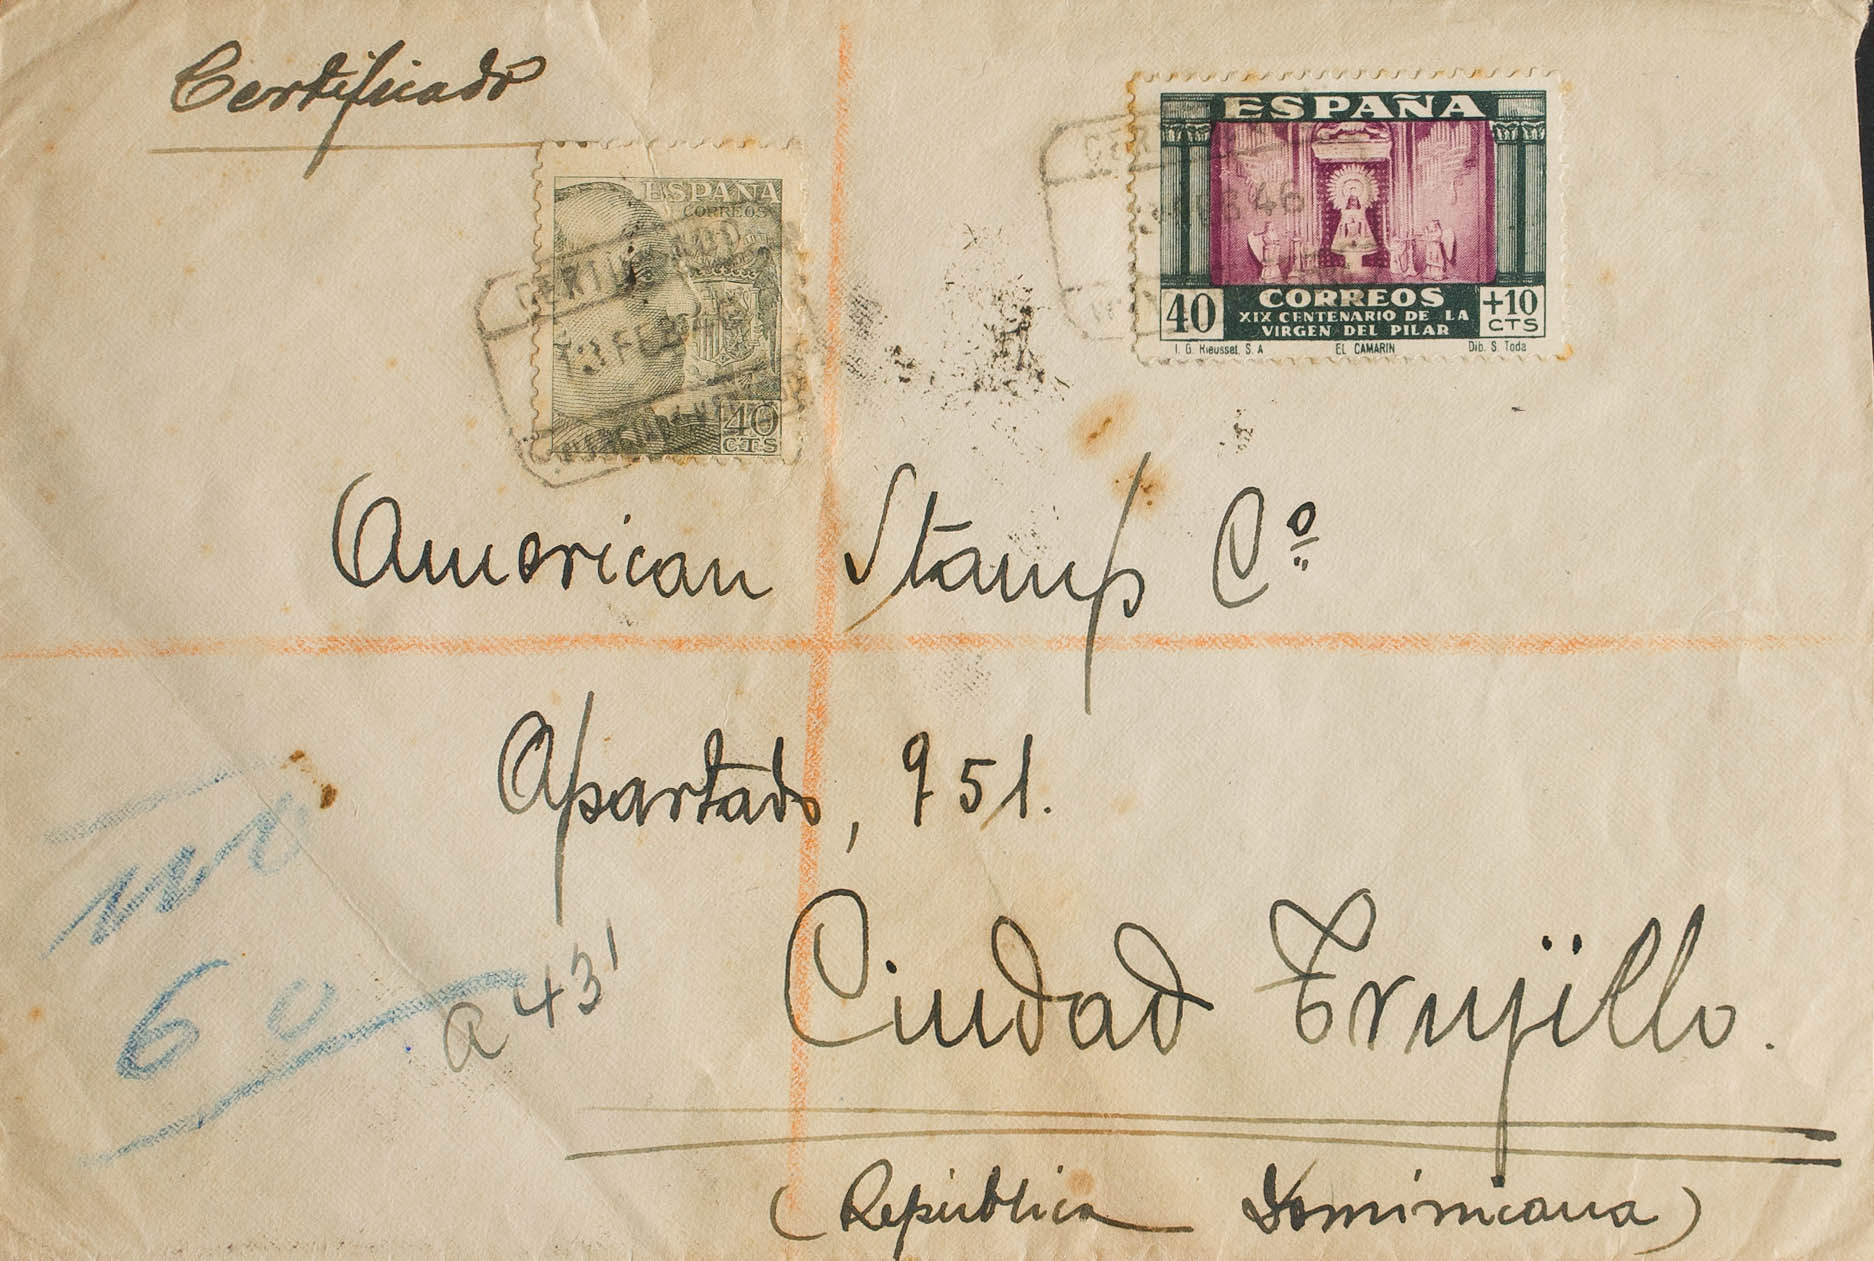 Certificado
ESPAÑA
CORREOS
40
CTS
CERTIFICADO
FEB
ESPAÑA
46
40
CORREOS
XIX CENTENARIO DE LA
VIRGEN DEL PILAR
+10
CTS
I. G. Rieusset. S. A EL CAMARIN Dib. S. Toda
American Stamp Cº
Apartado, 951.
Ciudad Trujillo.
(República Dominicana)
60
a 43'